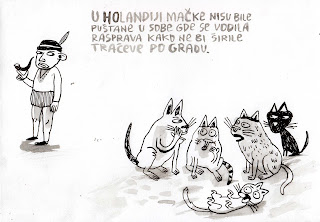 U HOLANDIJI MAČKE NISU BILE
PUŠTANE U SOBE GDE SE VODILA
RASPRAVA KAKO NE BI ŠIRILE
TRAČEVE PO GRADU.